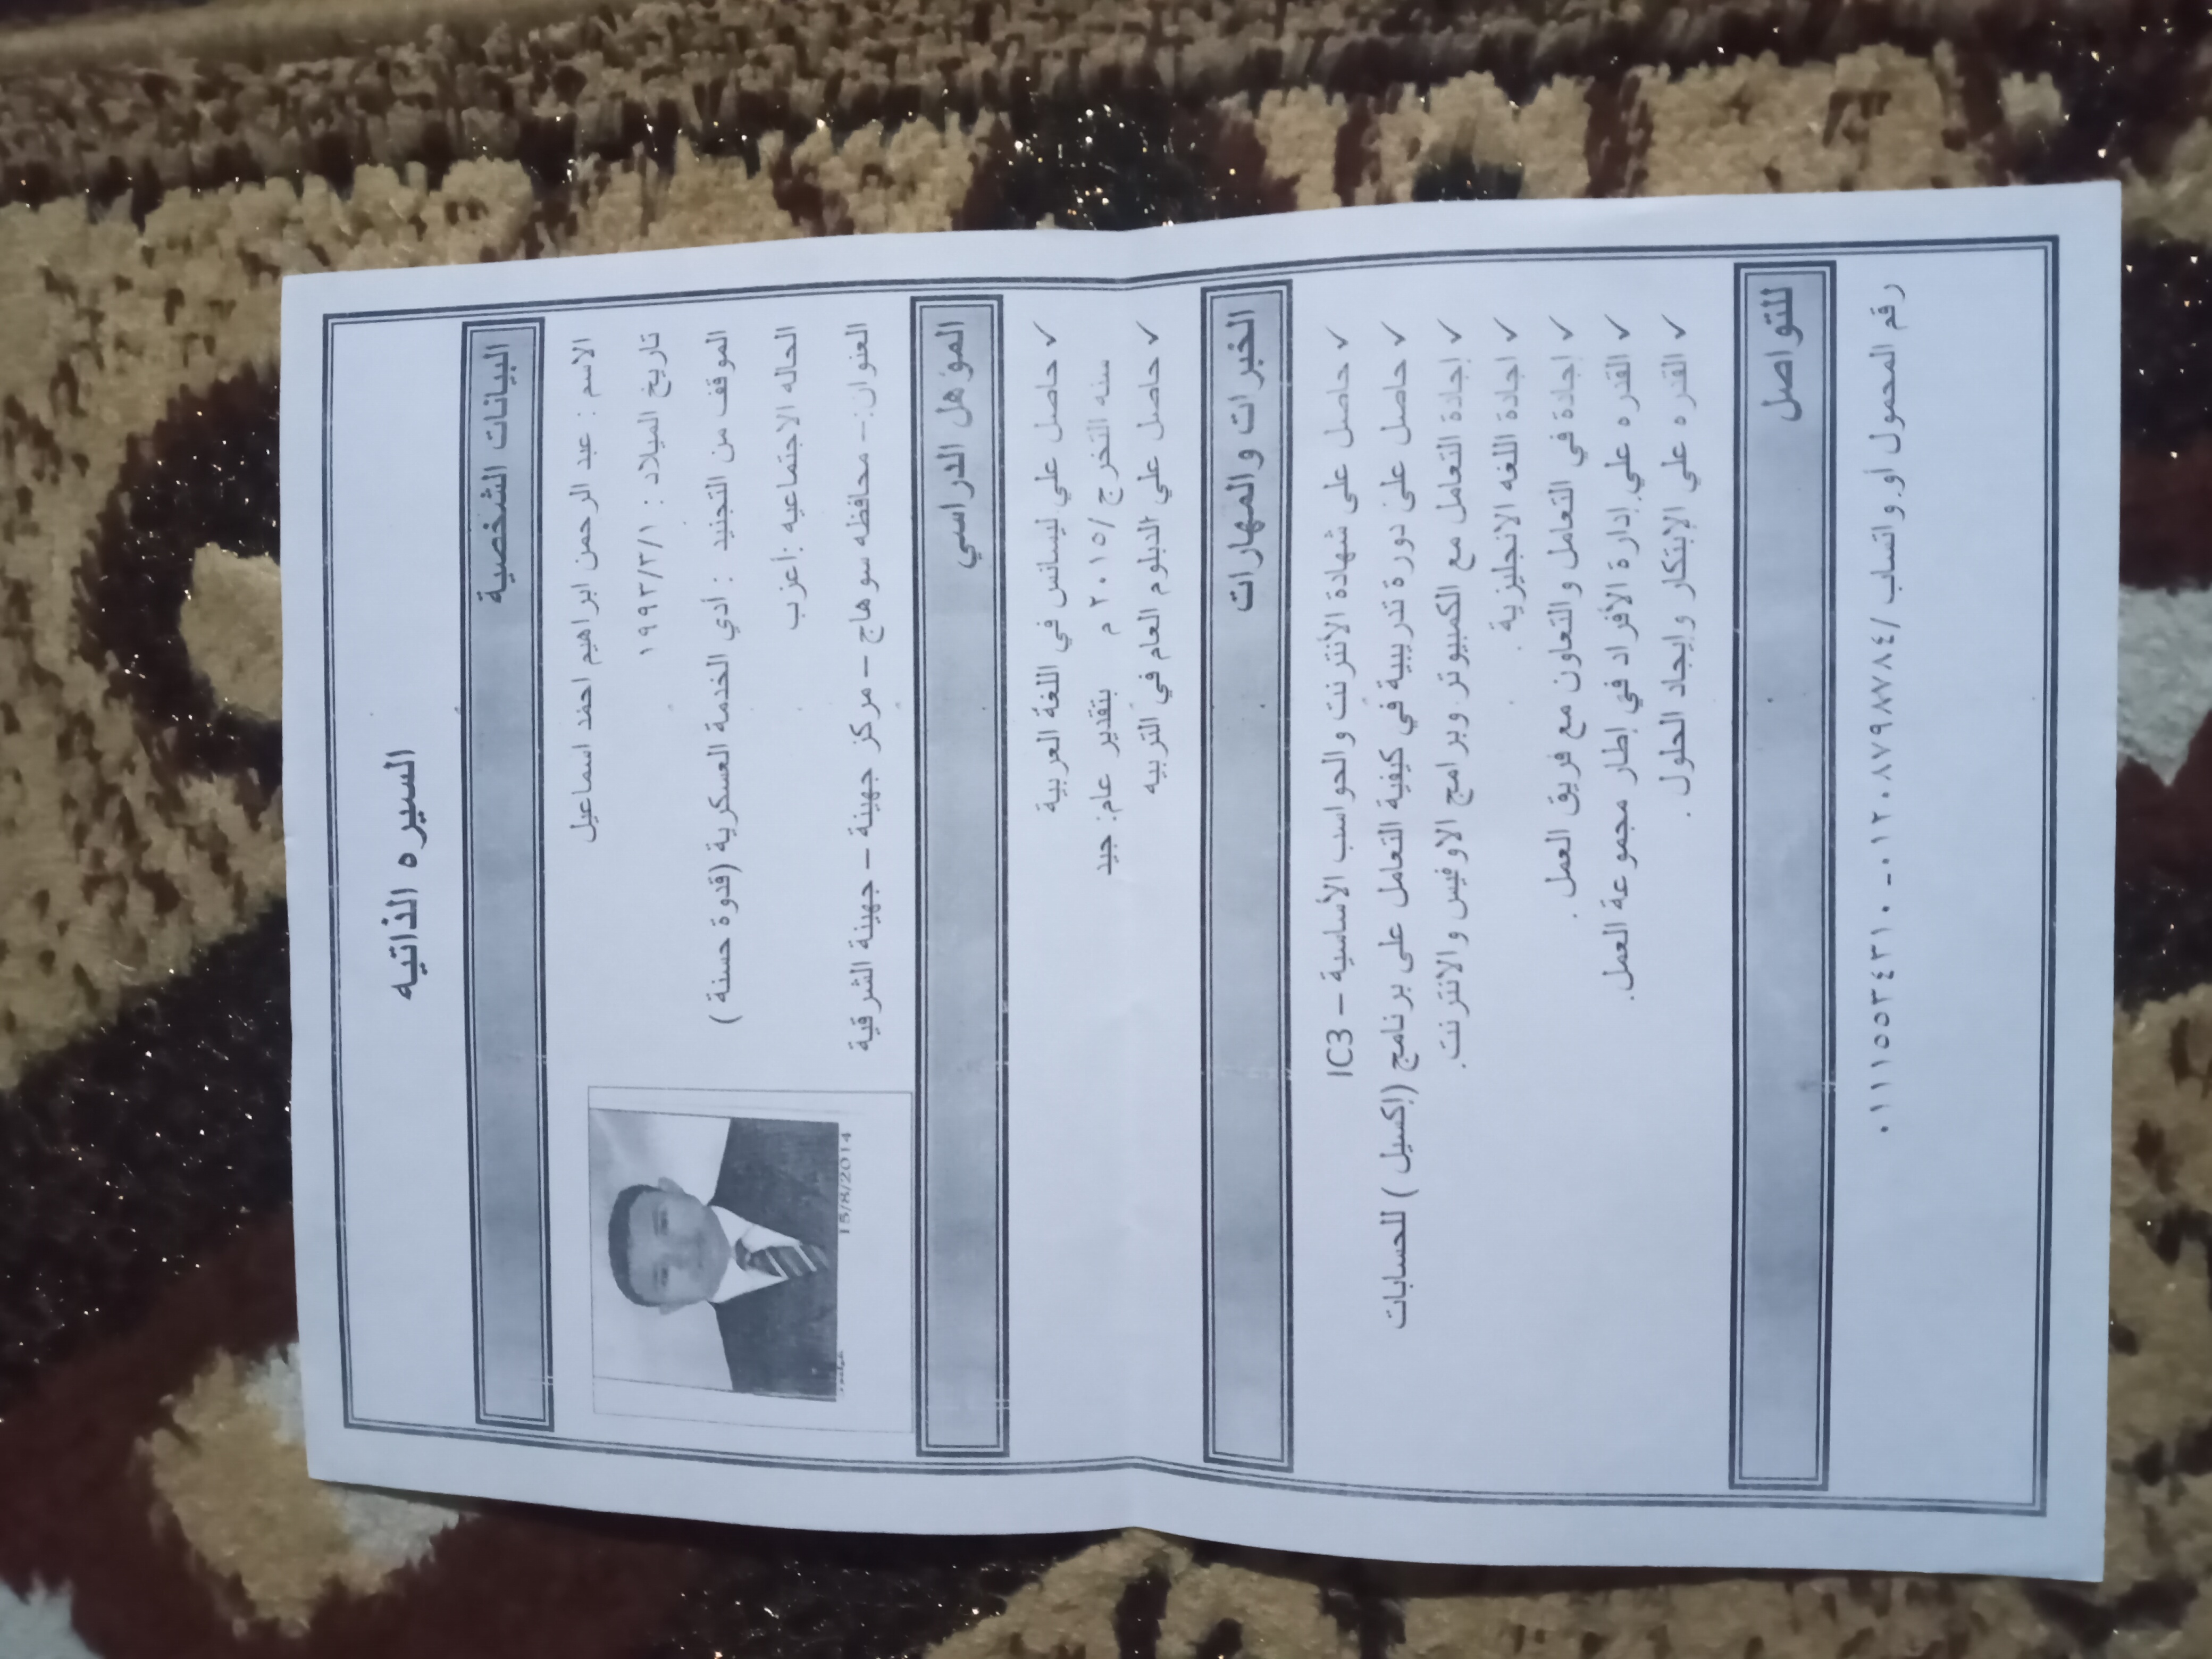 السيره الذاتيه
البيانات الشخصية
الاسم : عبد الرحمن ابراهيم احمد اسماعيل
تاريخ الميلاد : ١٩٩٣/٣/١
الموقف من التجنيد : أدي الخدمة العسكرية (قدوة حسنة )
الحاله الاجتماعيه :أعزب
العنوان:– محافظه سوهاج – مركز جهينة – جهينة الشرقية
15/8/2014
المؤهل الدراسي
✓ حاصل علي ليسانس في اللغة العربية
سنه التخرج /٢٠١٥ م بتقدير عام: جيد
✓ حاصل علي الدبلوم العام في التربيه
الخبرات والمهارات
✓ حاصل على شهادة الأنترنت والحواسب الأساسية – IC3
✓ حاصل على دورة تدريبية في كيفية التعامل على برنامج (إكسيل ) للحسابات
✓ إجادة التعامل مع الكمبيوتر وبرامج الاوفيس والانترنت.
✓ اجادة اللغه الانجليزية .
✓ إجادة في التعامل والتعاون مع فريق العمل .
✓ القدره علي إدارة الأفراد في إطار مجموعة العمل.
✓ القدره علي الإبتكار وإيجاد الحلول .
للتواصل
رقم المحمول أو واتساب /٠١٢٠٨٧٩٨٧٧٨٤ - ٠١١١٥٥٣٤٣١٠